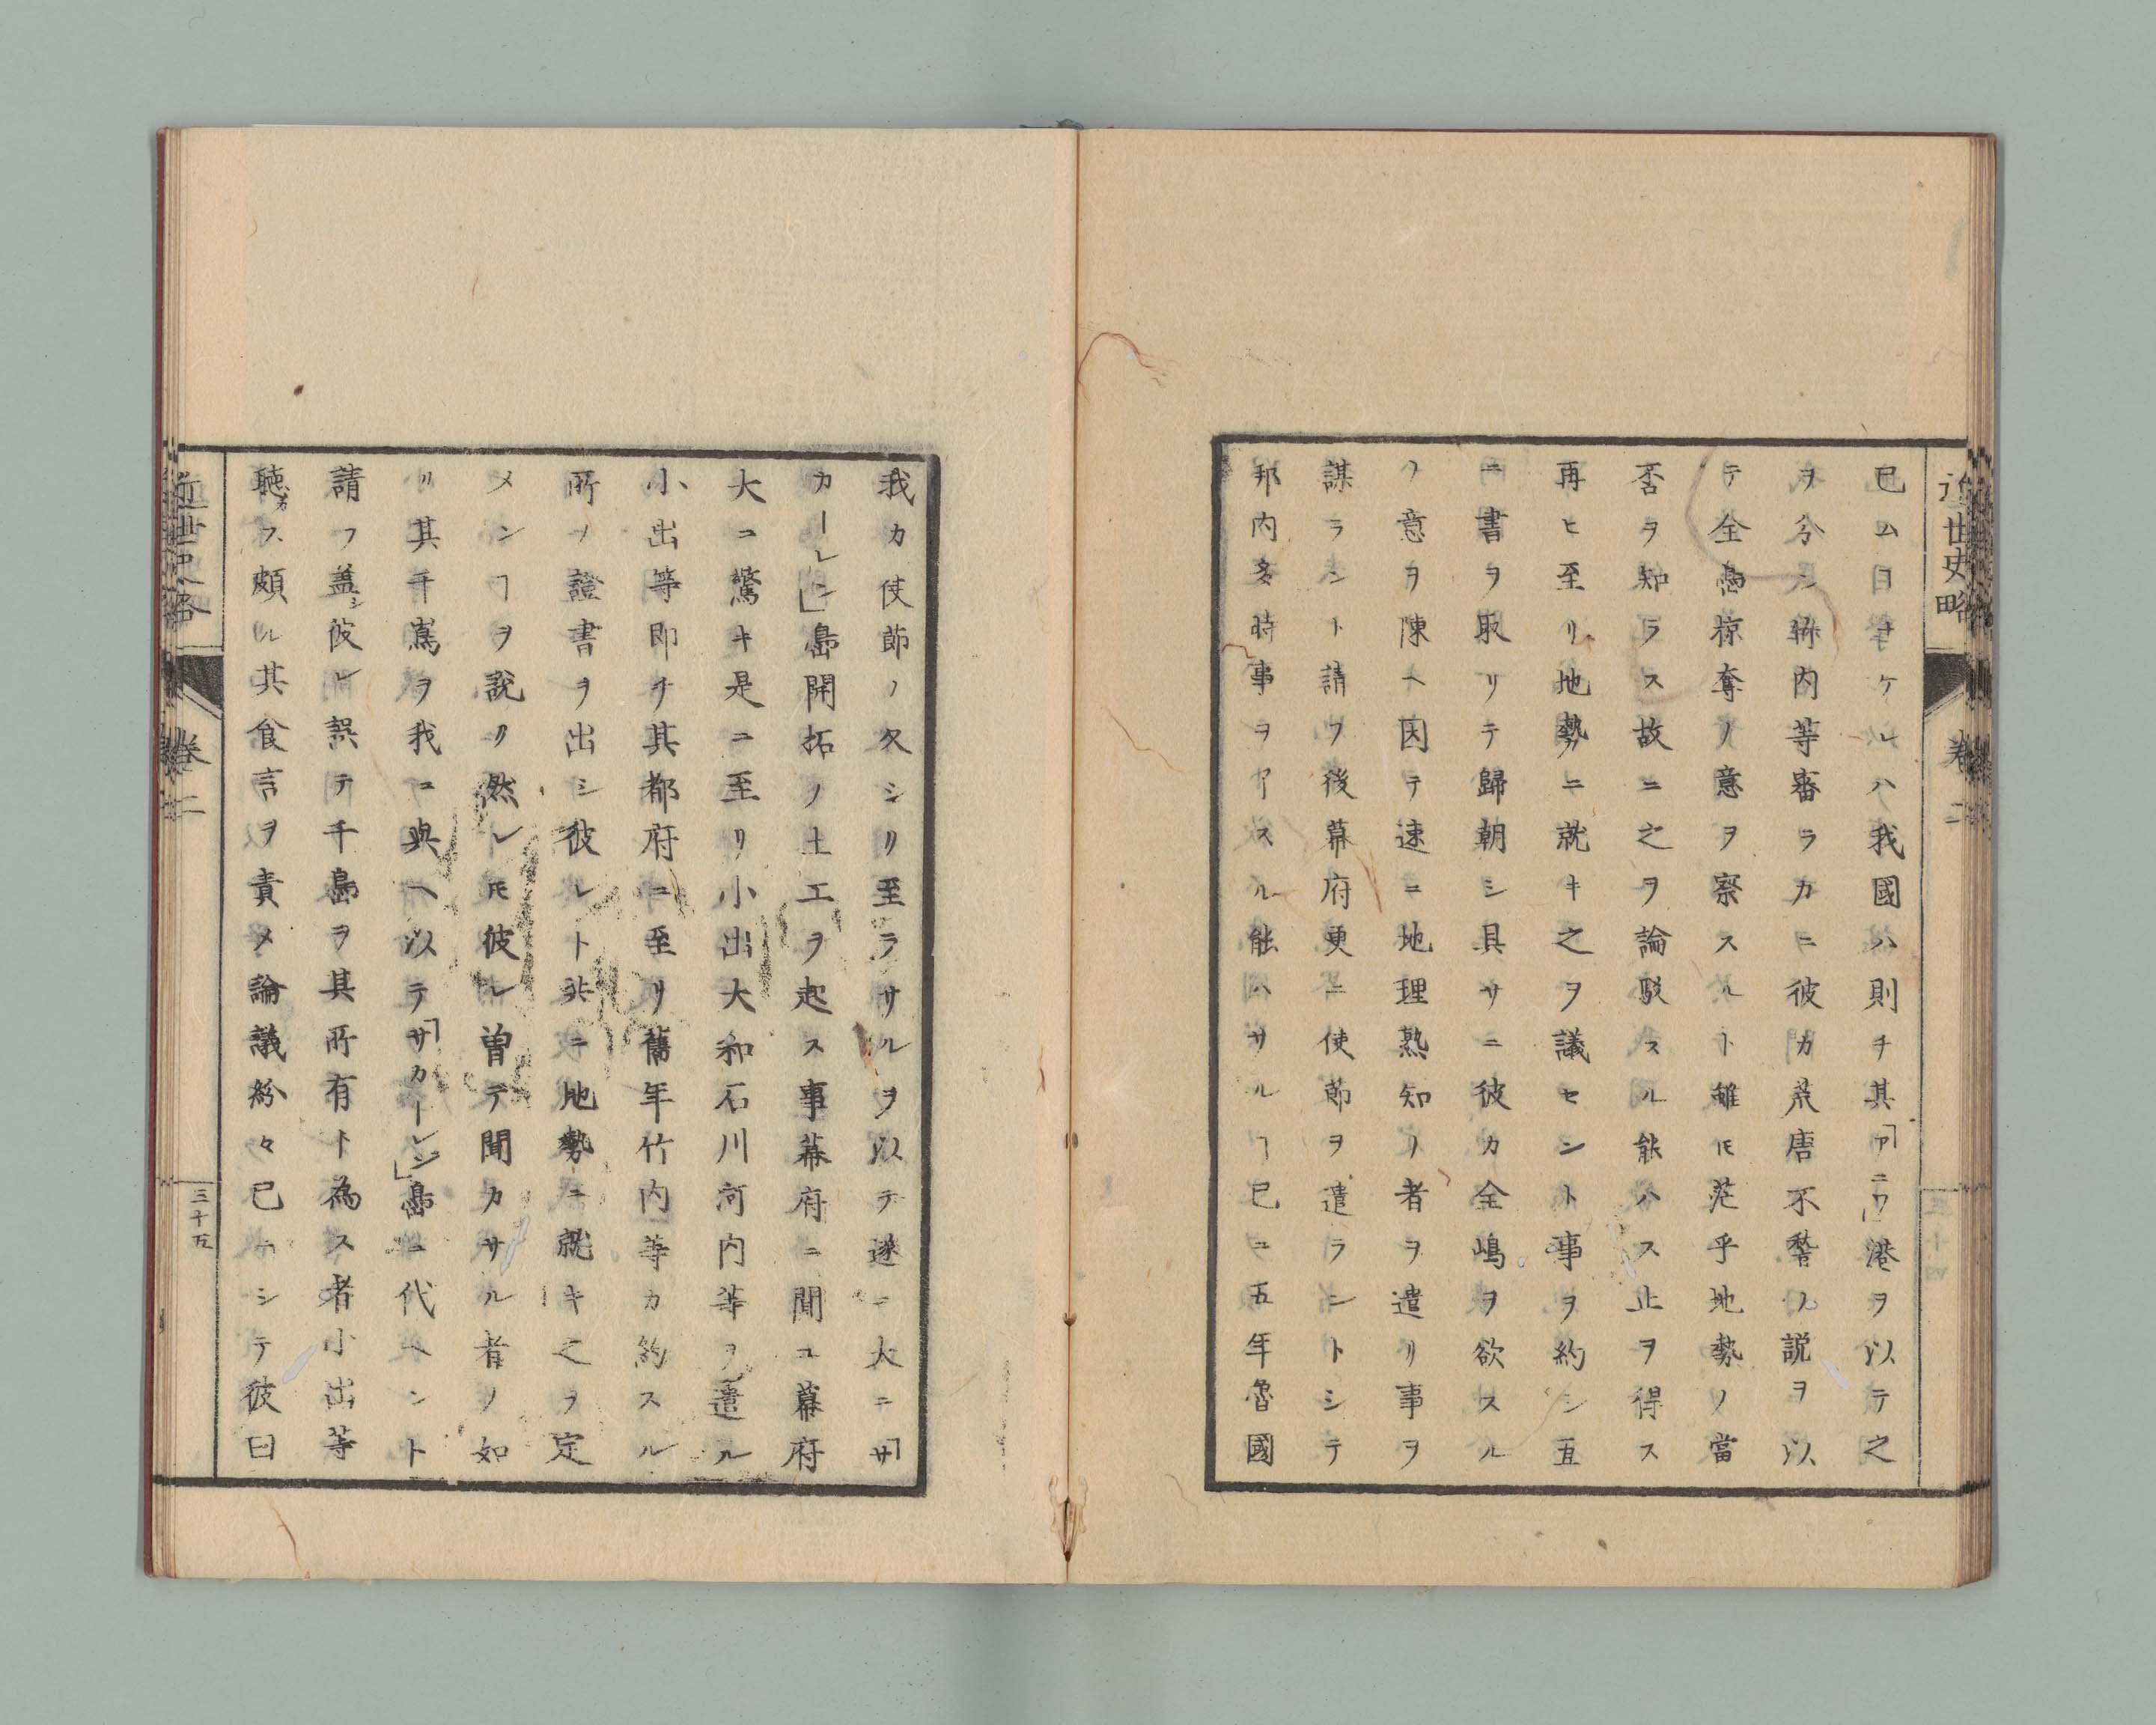 近世史略 卷二
已ムヿナケレハ我國ハ則チ其「アニワ」港ヲ以テ之
ヲ分シ辨内等審ラカニ彼カ荒唐不稽ノ説ヲ以
テ全島掠奪ノ意ヲ察スルト雖ㇳモ茫乎地勢ノ當
否ヲ知ラス故ニ之ヲ論駁スル能ハス止ヲ得ス
再ヒ至リ地勢ニ就キ之ヲ議セント事ヲ約シ互
ニ書ヲ取リテ歸朝シ具サニ彼カ全嶋ヲ欲スル
ノ意ヲ陳ヘ因テ速ニ地理熟知ノ者ヲ遣リ事ヲ
謀ラント請フ後幕府更ニ使節ヲ遣ラントシテ
邦内多時事ヲ果スル能ハサルヿ已ニ五年魯國
我カ使節ノ久シリ至ラサルヲ以テ遂ニ大ニ「サ
カーレン」島開拓ノ土工ヲ起ス事幕府ニ聞ユ幕府
大ニ驚キ是ニ至リ小出大和石川河内等ヲ遣ル
小出等即チ其都府ニ至リ舊年竹内等カ約スル
所ノ證書ヲ出シ彼レト共ニ地勢ニ就キ之ヲ定
メンヿヲ説ク然レㇳモ彼レ曽テ聞カサル者ノ如
ク其千嶌ヲ我ニ與ヘ以テ「サカーレン」島ニ代ヘント
請フ蓋シ彼レ誤テ千島ヲ其所有ト為ス者小出等
聽カス頗ル其食言ヲ責メ論議紛々已ニシテ彼曰
近世史略 卷二 三十五